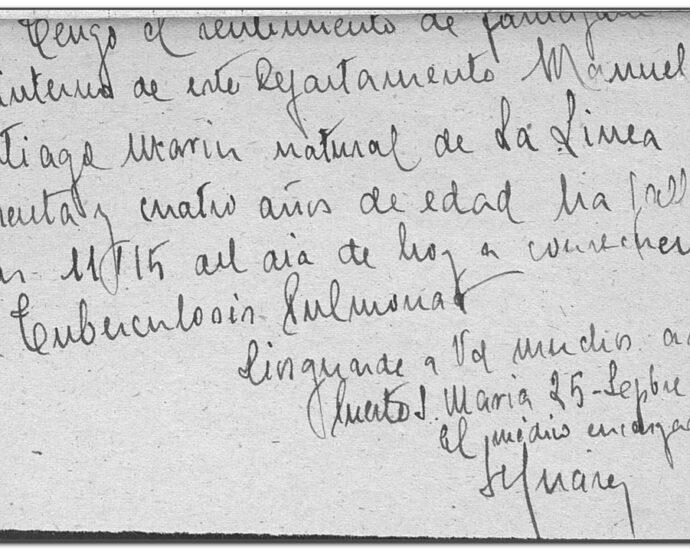 Tengo el sentimiento de
interno de este Departamento Manuel
tiago Marin natural de La Linea
enta y cuatro años de edad ha fall
11,15 del dia de hoy a consecuen
Tuberculosis Pulmonar
Dios guarde a Vd muchos a
Puerto S. Maria 25-Sepbre
el médico encarga